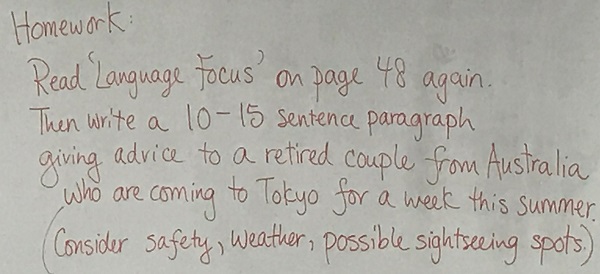 Homework:
Read 'Language Focus' on page 48 again.
Then write a 10-15 sentence paragraph
giving advice to a retired couple from Australia
who are coming to Tokyo for a week this summer.
(Consider safety, weather, possible sightseeing spots.)